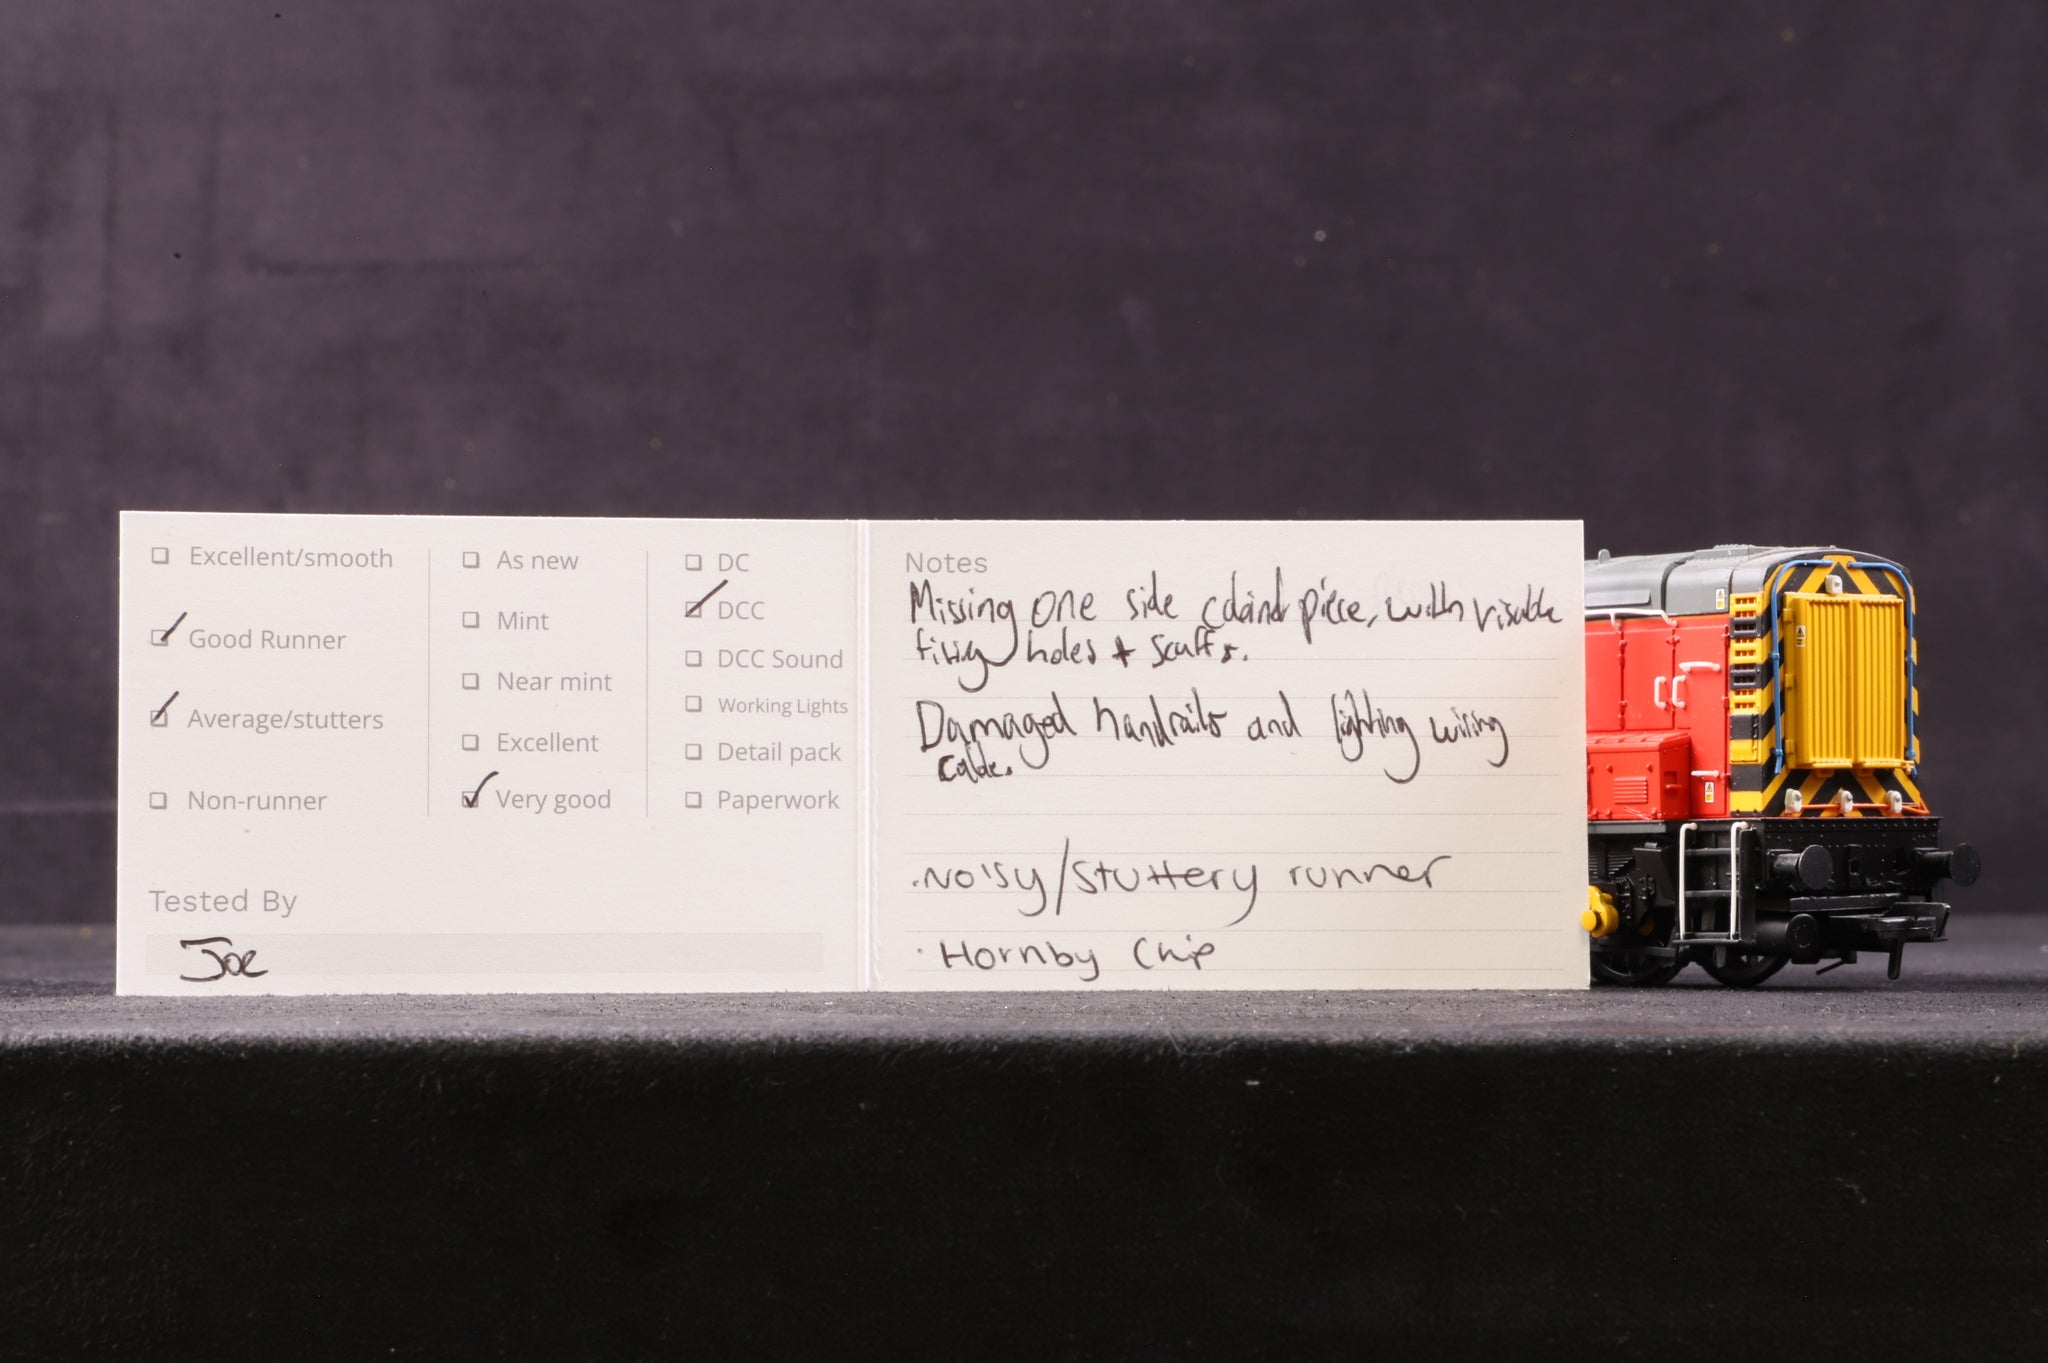 Excellent/smooth
Good Runner
Average/stutters
Non-runner
As new
Mint
Near mint
Excellent
Very good
DC
DCC
DCC Sound
Working Lights
Detail pack
Paperwork
Tested By
Joe
Notes
Missing one side piece, with
holes + scuffs.
Damaged handrails and lighting wiring
.Noisy/stuttery runner
· Hornby Chip